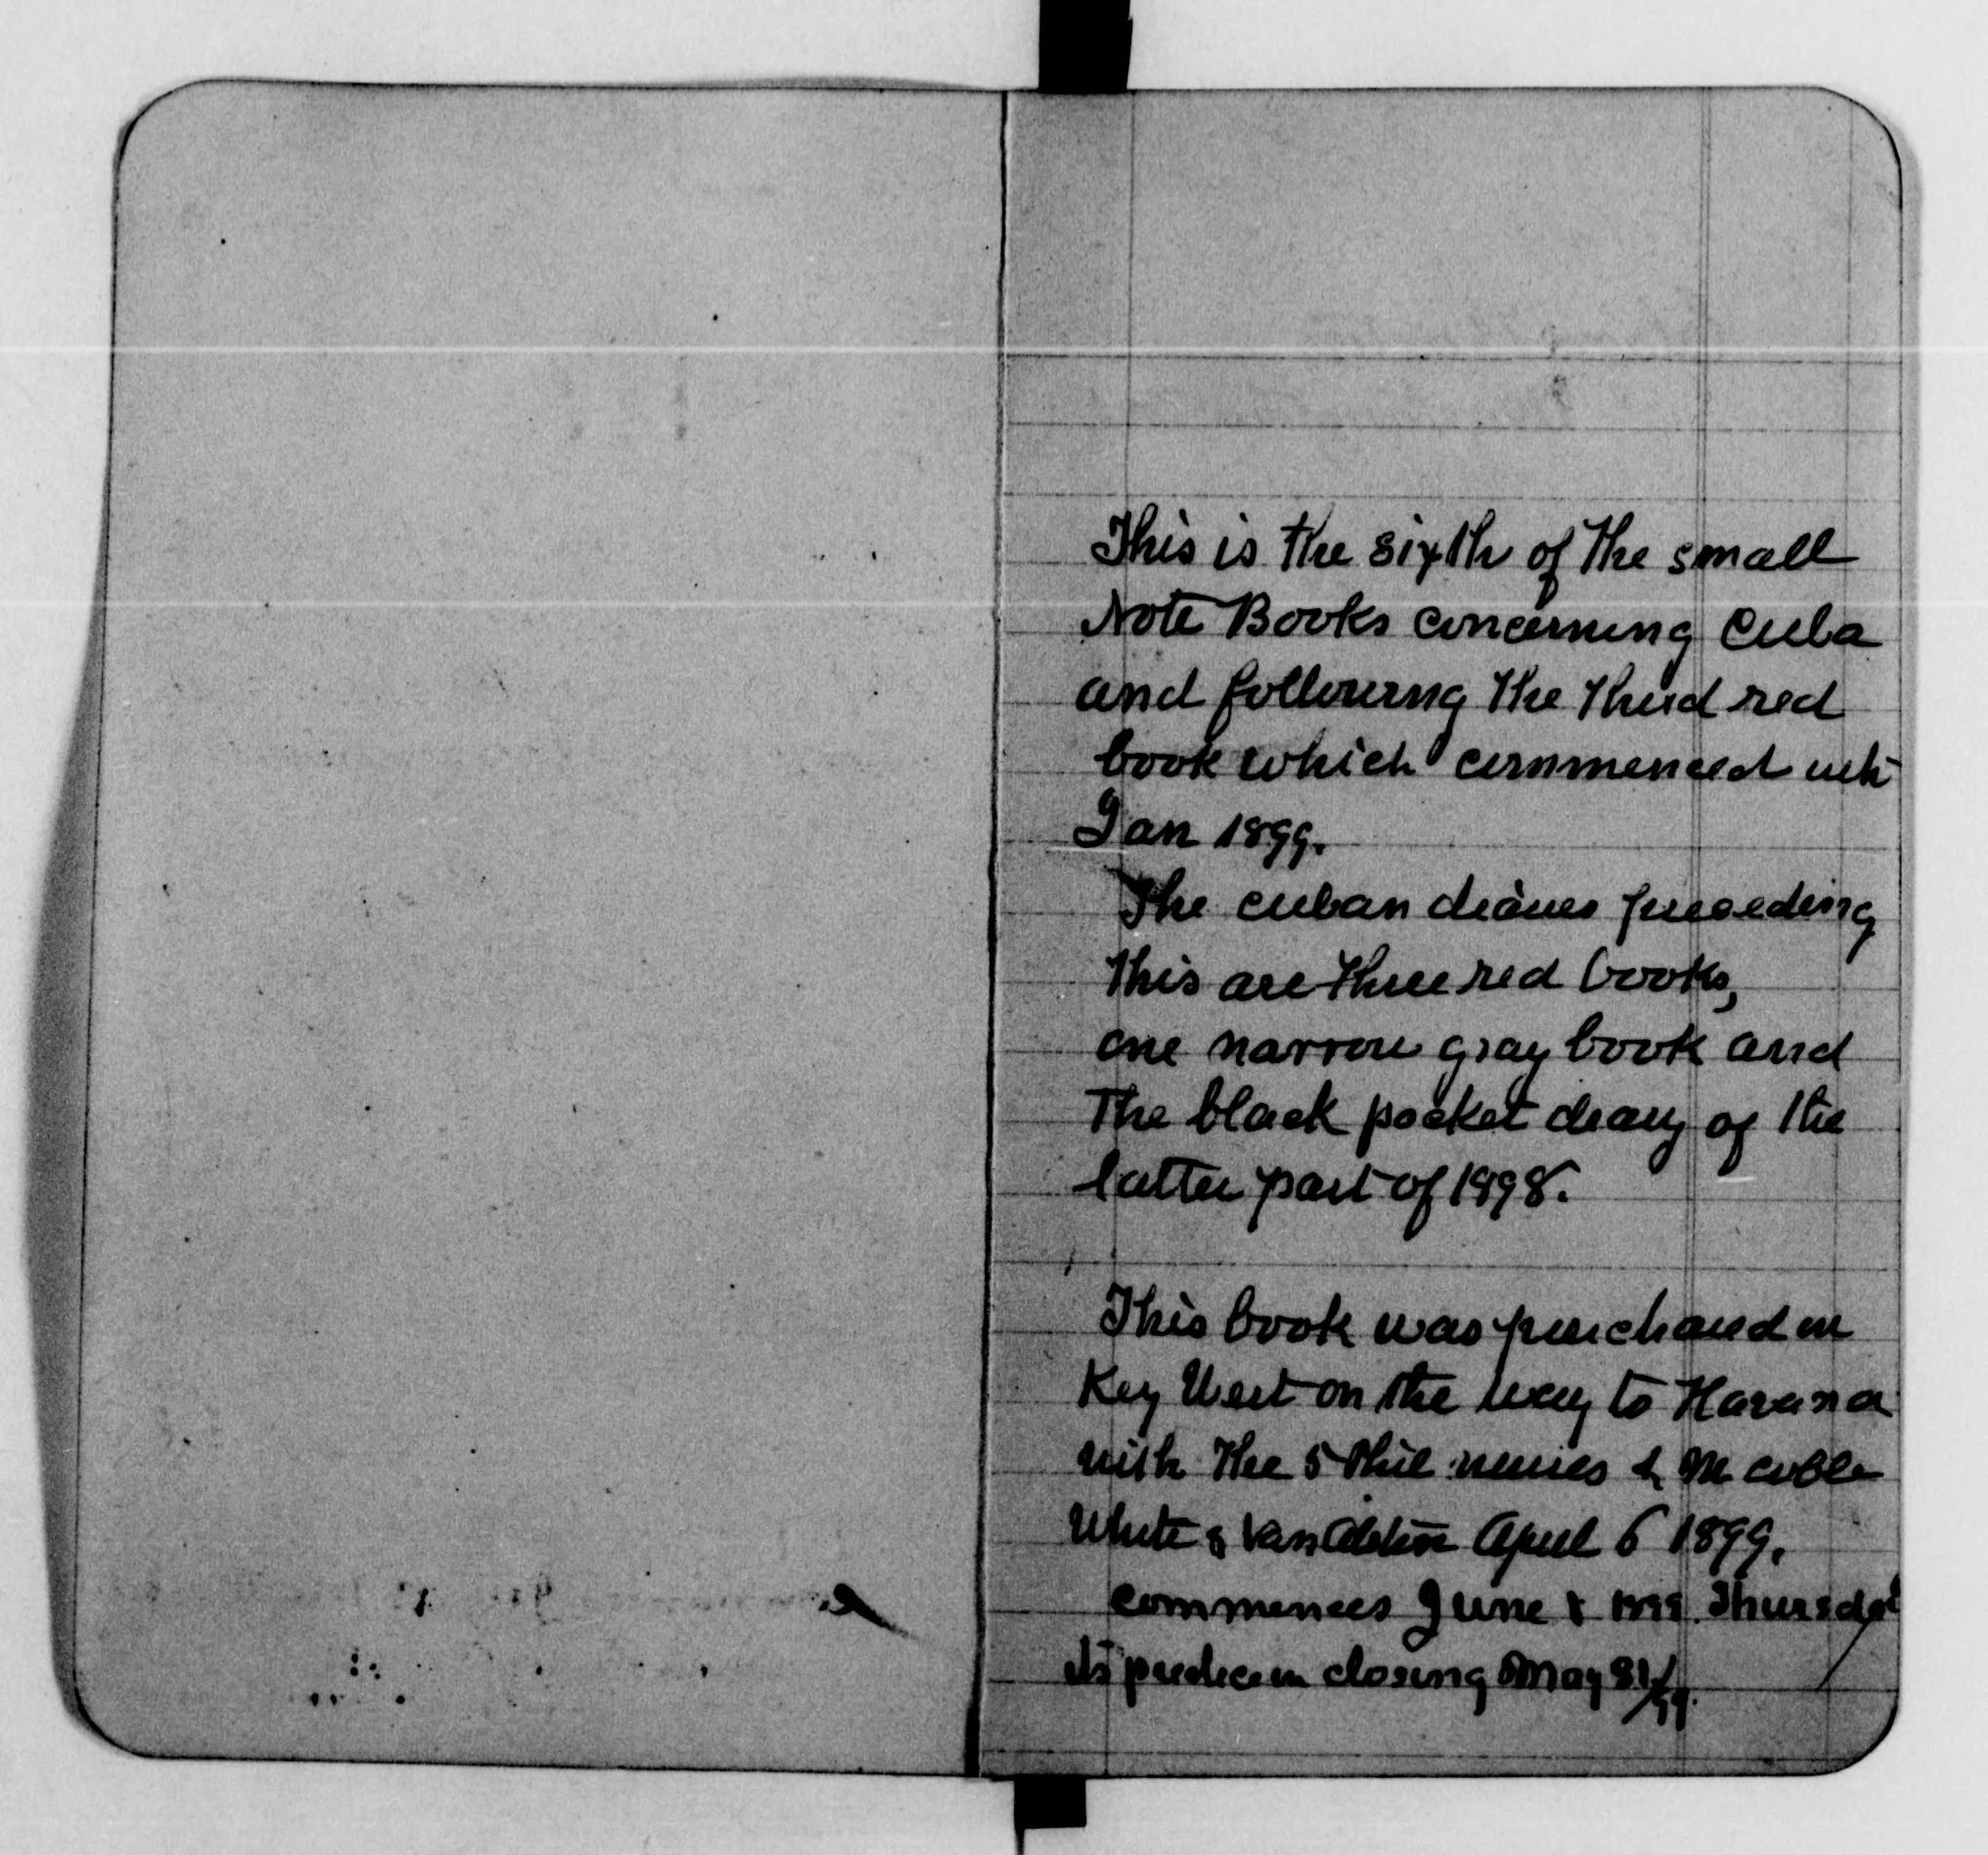 This is the sixth of the small
Note Books concerning Cuba
and following the third red
book which commenced with
Jan 1899.
The cuban diaries preceeding
this are three red books,
one narrow gray book and
The black pocket diary of the
latter part of 1898.
This book was purchased in
Key West on the way to Havana
with the 5 Phil nurses &
White & April 6 1899.
commences June 1899. Thursday
its closing May 31/99.